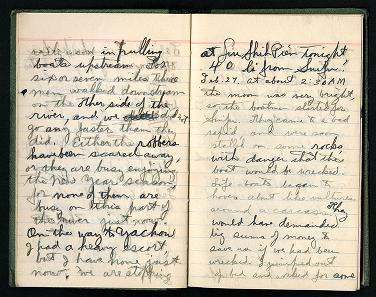 used in pulling
boats upstream. For
six or seven miles these
men walked downstream
on the other side of the
river, and we did not
go any faster than they
did. Either the robbers
have been scared away,
or they are busy enjoying
the New Year season,
or none of them are
busy on this part of
the river just now.
On the way to Yachow
I had a heavy escort
but I have none just
now. We are stopping
at Liu Shih Pien tonight
40 li from Suifu.
Feb. 27. At about 2:30 AM
the moon was very bright,
so the boatmen started for
Suifu. They came to a bad
rapid and were soon
stalled on some rocks
with danger that the
boat would be wrecked.
Life boats began to
hover about like vultures
around a carcass. They
would have demanded
big sums of money to
save us if we had been
wrecked. I jumped out
of bed and asked for some